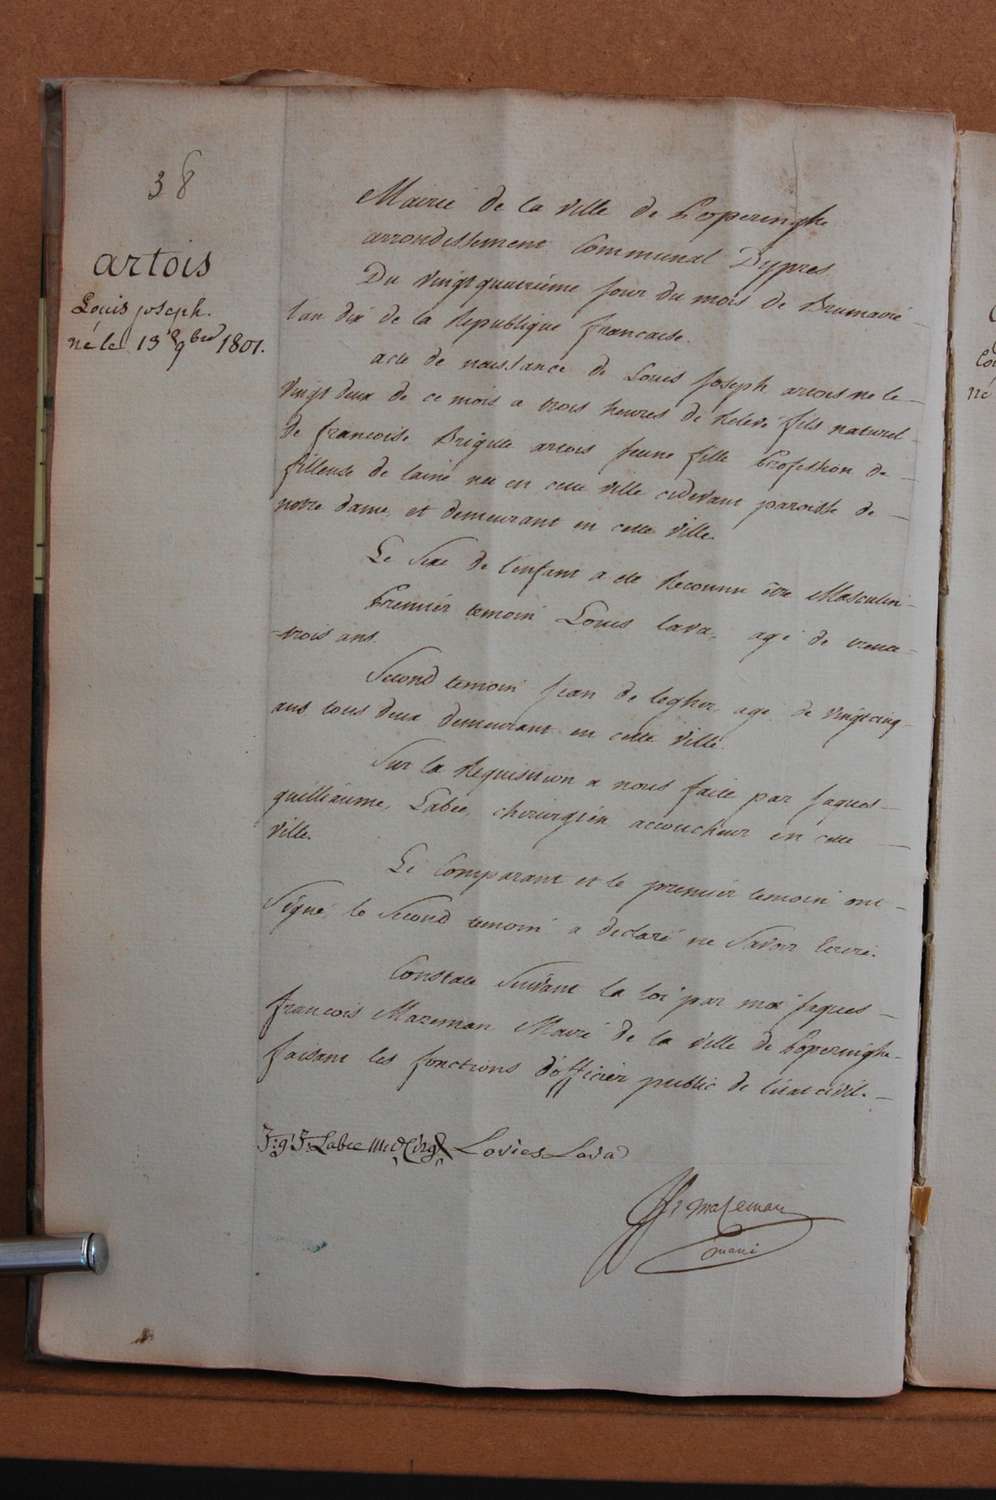 38
artois
Louis joseph.
né le 13 9bre 1801.
Mairie de la Ville de Poperinghe
arrondissement Communal Dypres
Du Vingt quatrieme jour du mois de Brumaire
l'an dix de la Republique francaise.
acte de naissance de Louis Joseph artois ne le
Vingt deux de ce mois a trois heures de Relevé fils naturel
de francoise Brigitte artois jeune fille Profession de
filleuse de laine nee en cette ville cidevant paroisse de
notre dame, et demeurant en cette ville.
Le Sexe de l'enfant a ete Reconnu être Masculin
Premier temoin Louis Lava, agé de trente
trois ans.
Second temoin Jean de legher age de vingt cinq
ans tous deux demeurant en cette Ville.
Sur la Requisition a nous faite par Jaques
guilleaume Labee, chirurgien accoucheur en cette
Ville.
Le Comparant et le premier temoin ont
Signé, le Second temoin a declaré ne Savoir Ecrire.
Constaté Suivant la loi par moi Jaques
francois Mazeman Maire de la Ville de Poperinghe
faisant les fonctions d'officier public de l'état civil.
Labee Lovies Lava
Mazeman
maire